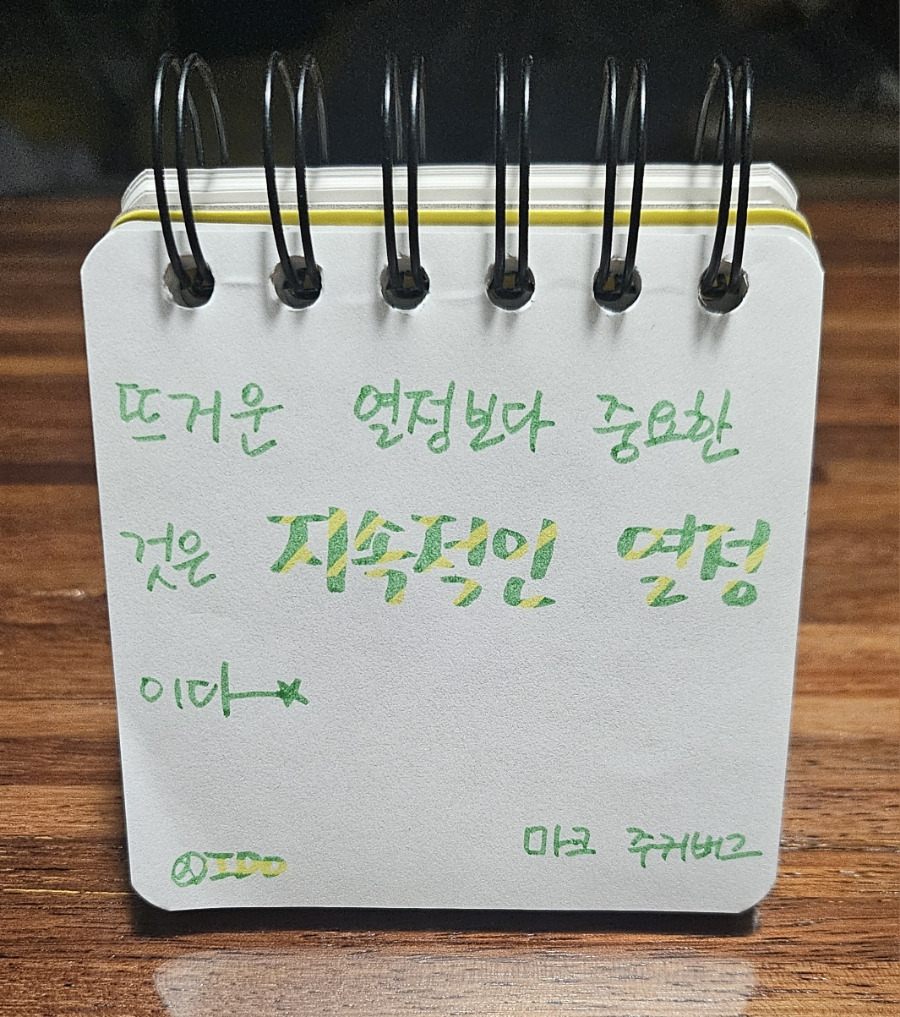 뜨거운 열정보다 중요한
것은 지속적인 열정
이다
마크 주커버그